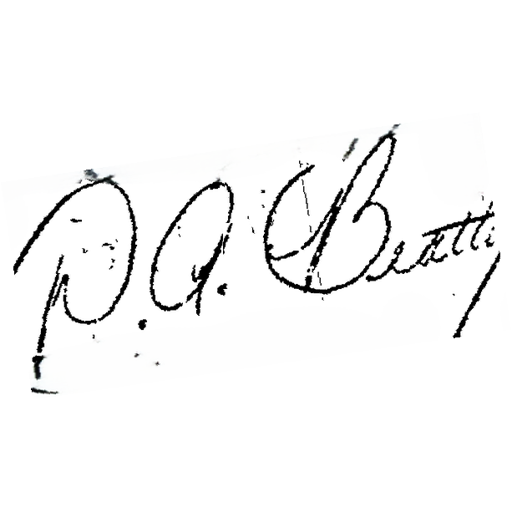 P. A. Beatty